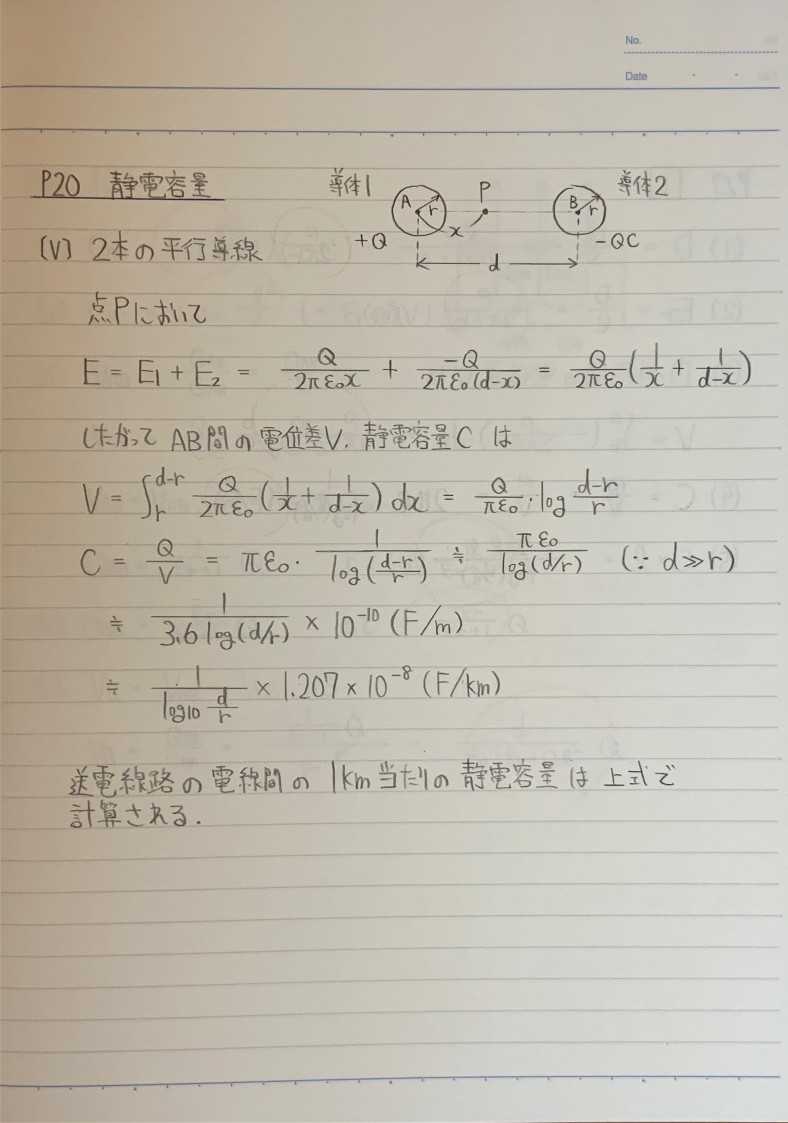 No.
Date
P20 静電容量
導体1 A r x P B r 導体2
+Q d -QC
(V) 2本の平行導線
点Pにおいて
E = E₁ + E₂ = Q/2πε₀x + -Q/2πε₀(d-x) = Q/2πε₀(1/x + 1/d-x)
したがって AB間の電位差V. 静電容量Cは
V = ∫_r^{d-r} Q/2πε₀(1/x + 1/d-x) dx = Q/πε₀ · log d-r/r
C = Q/V = πε₀ · 1/log(d-r/r) ≒ πε₀/log(d/r) (∵ d≫r)
≒ 1/3.6 log(d/r) × 10⁻¹⁰ (F/m)
≒ 1/log10 d/r × 1.207 × 10⁻⁸ (F/km)
送電線路の電線間の1km当たりの静電容量は上式で
計算される.